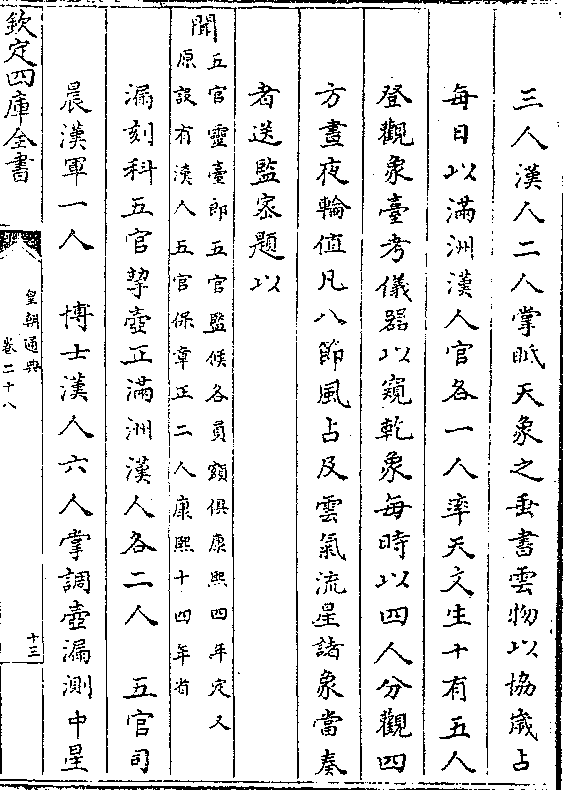 三人漢人二人掌眂天象之垂書雲物以協歲占
每日以滿洲漢人官各一人率天文生十有五人
登觀象臺考儀器以窺乾象每時以四人分觀四
方晝夜輪值凡八節風占及雲氣流星諸象當奏
者送監密題以
聞五官靈臺郎五官監候各員額俱康熙四年定又
原設有漢人五官保章正二人康熙十四年省
漏刻科五官挈壺正滿洲漢人各二人 五官司
晨漢軍一人 博士漢人六人掌調壺漏測中星
欽定四庫全書
皇朝通典
卷二十八
十三